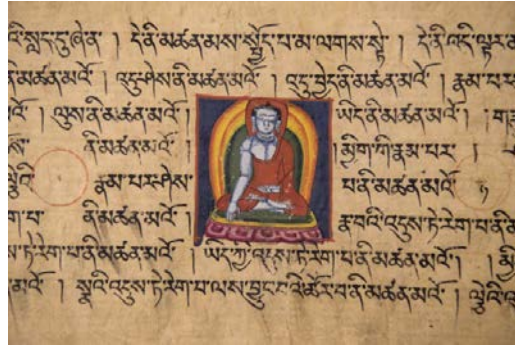 འི་སླད་དུ་ཞེ་ན། དེ་ནི་མཚན་མས་སྤྱོད་པ་མ་ལགས་སྟེ། དེ་ནི་འདི་ལྟར་མ
ནི་མཚན་མའོ། འདུ་ཤེས་ནི་མཚན་མའོ། འདུ་བྱེད་ནི་མཚན་མའོ། རྣམ་པར
། ལུས་ནི་མཚན་མའོ། ཡིད་ནི་མཚན་མའོ། །
ས་ ནི་མཚན་མའོ། མྱིག་གི་རྣམ་པར་
ལྕེའི་ རྣམ་པར་ཤེས་ པ་ནི་མཚན་མའོ།
ག་པ་ ནི་མཚན་མའོ། རྣ་བའི་འདུས་ཏེ་རེག་པ་ནི་མ
ས་ཏེ་རེག་པ་ནི་མཚན་མའོ། ཡིད་ཀྱི་འདུས་ཏེ་རེག་པ་ནི་མཚན་མའོ། མྱི
་མའོ། སྣའི་འདུས་ཏེ་རེག་པ་ལས་བྱུང་བའི་ཚོར་བ་ནི་མཚན་མའོ། ལྕེའི་འ